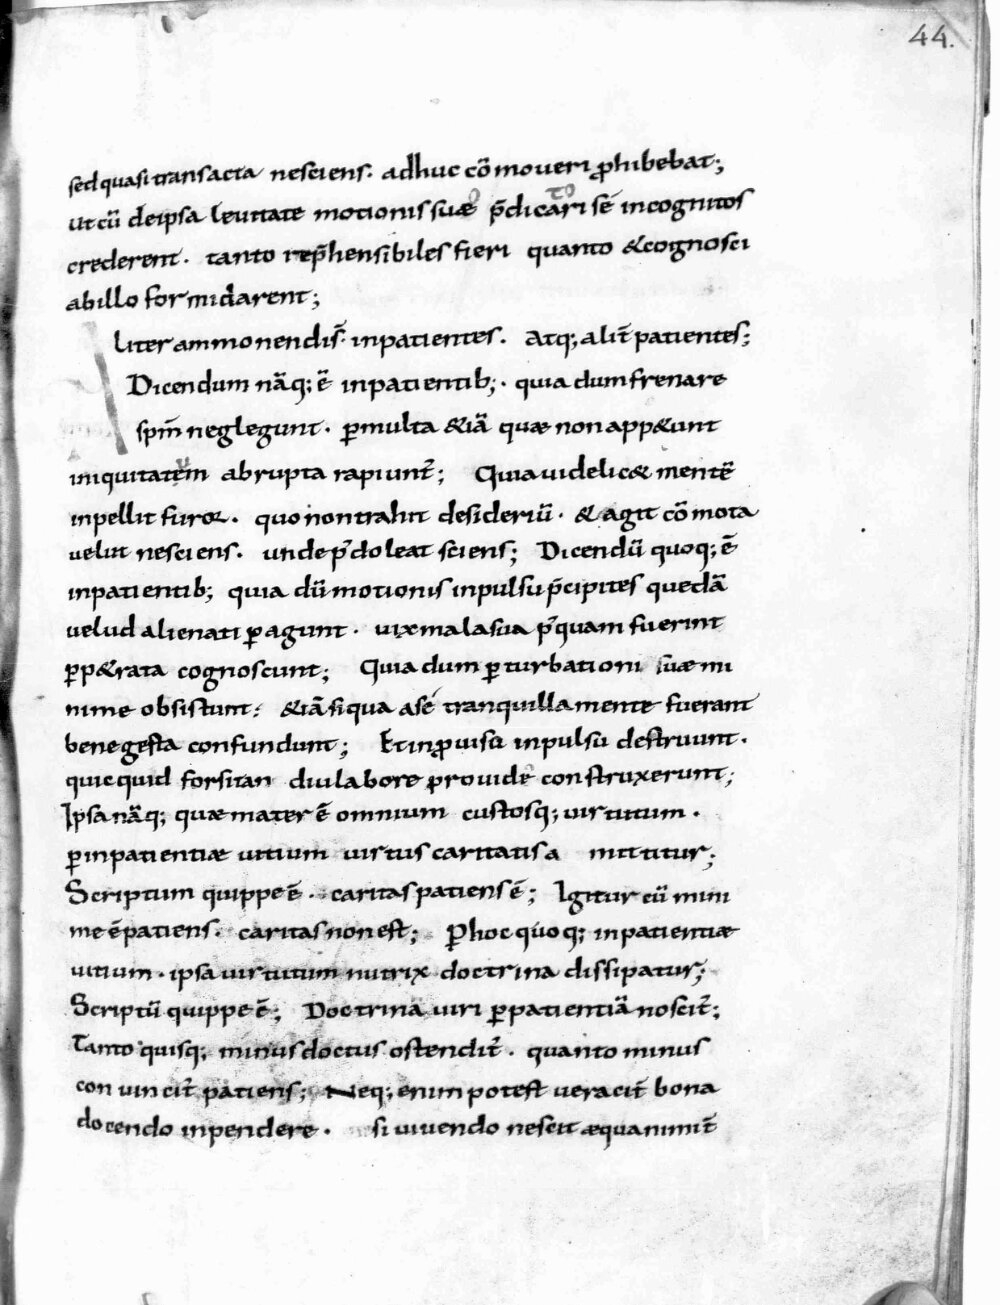 44.
sed quasi transacta nesciens. adhuc cõmoueri ꝓhibebat;
ut cũ de ipsa leuitate motionis suae p̃dicatori sẽ incognitos
crederent. tanto rep̃hensibiles fieri quanto & cognosci
ab illo formidarent;
liter ammonendi s̃ inpatientes. Atq; alit̃ patientes;
Dicendum nãq; ẽ inpatientib;. quia dum frenare
sp̃m neglegunt. ꝑ multa &iã quae non app&unt
iniquitatum abrupta rapiunt̃; Quia uidelic& mentẽ
inpellit furor. quo non trahit desideriũ. & agit cõmota
uelut nesciens. unde p̃ doleat sciens; Dicendũ quoq; ẽ
inpatientib; quia dũ motionis inpulsu p̃cipites quedã
uelud alienati ꝑagunt. uix mala sua p̃quam fuerint
ꝑp&rata cognoscunt; Quia dum ꝑturbationi suae mi
nime obsistunt; &iã si qua a se tranquilla mente fuerant
bene gesta confundunt; Et inꝓuiso inpulsu destruunt.
quicquid forsitan diu labore prouido construxerunt;
Ipsa nãq; quae mater ẽ omnium custosq; uirtutum.
ꝑ inpatientiae uitium uirtus caritatis a mittitur;
Scriptum quippe ẽ. caritas patiens ẽ; Igitur cũ mini
me ẽ patiens. caritas non est; Ꝑ hoc quoq; inpatientiae
uitium. ipsa uirtutum nutrix doctrina dissipatur;
Scriptũ quippe ẽ; Doctrina uiri ꝑ patientiã noscit̃;
Tanto quisq; minus doctus ostendit̃. quanto minus
conuincit̃ patiens; Neq; enim potest ueracit̃ bona
docendo inpendere. si uiuendo nescit aequanimit̃